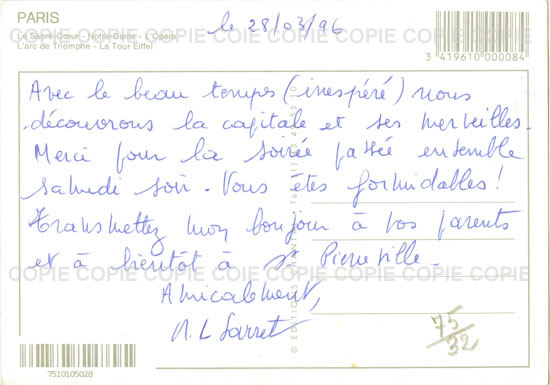 PARIS
Le Sacré-Cœur - Notre-Dame - L'Opéra
L'arc de Triomphe - La Tour Eiffel
le 28/03/96
3 419610 000084
COPIE COPIE COPIE COPIE COPIE COPIE COPIE
Avec le beau temps (inespéré) nous
découvrons la capitale et ses merveilles.
Merci pour la soirée passée ensemble
samedi soir. Vous êtes formidables !
Transmettez mon bonjour à vos parents
et à bientôt à St Pierreville.
COPIE COPIE COPIE COPIE COPIE COPIE COPIE
Amicalement,
© EDITIONS
75/32
7510105028